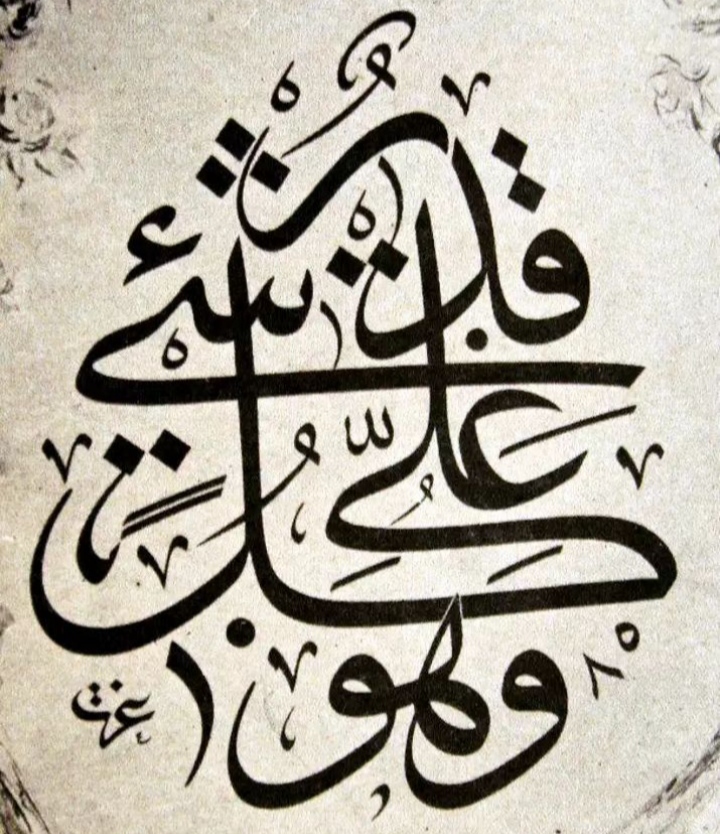 وهو على كل شئ قدير
عزت